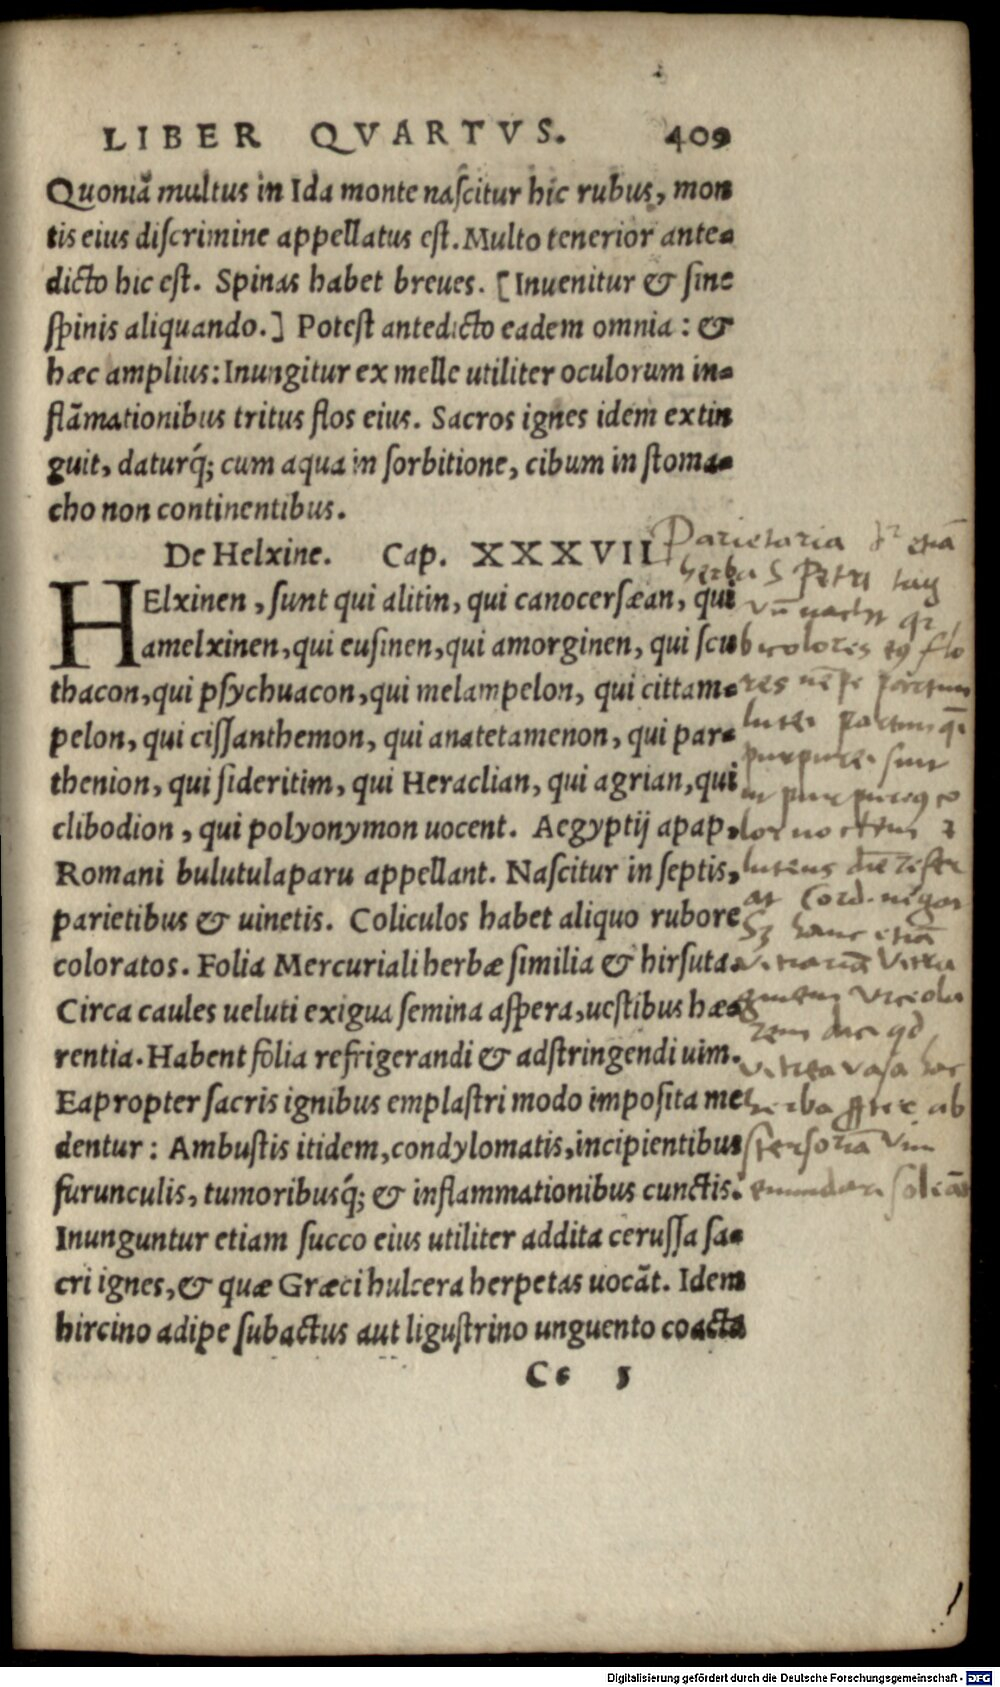 LIBER QVARTVS. 409
Quoniã multus in Ida monte naſcitur hic rubus, mon
tis eius diſcrimine appellatus eſt. Multo tenerior ante-
dicto hic eſt. Spinas habet breues. [Inuenitur & ſine
ſpinis aliquando.] Poteſt antedicto eadem omnia : &
hæc amplius: Inungitur ex melle utiliter oculorum in-
flãmationibus tritus flos eius. Sacros ignes idem extin
guit, daturq́; cum aqua in ſorbitione, cibum in ſtoma-
cho non continentibus.
De Helxine. Cap. XXXVII
HElxinen, ſunt qui alitin, qui canocerſæan, qui
amelxinen, qui euſinen, qui amorginen, qui ſcu
thacon, qui pſychuacon, qui melampelon, qui cittam-
pelon, qui ciſſanthemon, qui anatetamenon, qui par-
thenion, qui ſideritim, qui Heraclian, qui agrian, qui
clibodion, qui polyonymon uocent. Aegyptij apap,
Romani bulutulaparu appellant. Naſcitur in ſeptis,
parietibus & uinetis. Coliculos habet aliquo rubore
coloratos. Folia Mercuriali herbæ ſimilia & hirſuta.
Circa caules ueluti exigua ſemina aſpera, ueſtibus hæ-
rentia. Habent folia refrigerandi & adſtringendi uim.
Eapropter ſacris ignibus emplaſtri modo impoſita me
dentur : Ambuſtis itidem, condylomatis, incipientibus
furunculis, tumoribusq́; & inflammationibus cunctis.
Inunguntur etiam ſucco eius utiliter addita ceruſſa ſa-
cri ignes, & quæ Græci hulcera herpetas uocãt. Idem
hircino adipe ſubactus aut liguſtrino unguento coacta
Cc 5
Parietaria etiã
herba S Petri tag
bicolores flo
res partum
lutei partum
purpurei sunt
luteus
Cord. negat
hanc etiã
vitrea vasa hoc
herba ab
stersoriã vim
emundari soleãt
Digitalisierung gefördert durch die Deutsche Forschungsgemeinschaft - DFG